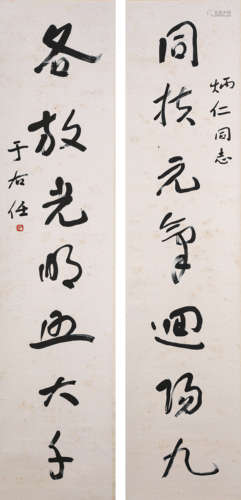 炳仁同志
同扶元气迴阳九
各放光明照大千
于右任